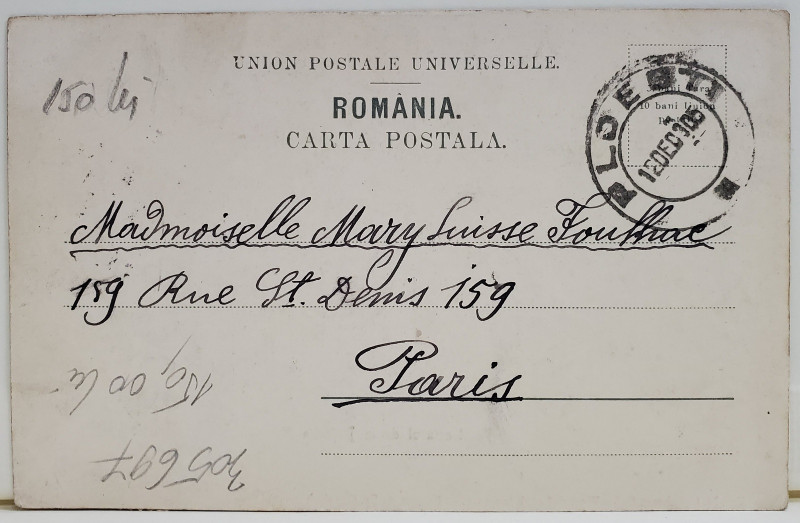 UNION POSTALE UNIVERSELLE.
ROMÂNIA.
CARTA POSTALA.
150 lei
10 bani
12 DEC
Madmoiselle Mary Luisse
159 Rue St. Denis 159
Paris
150,00 lei
305697